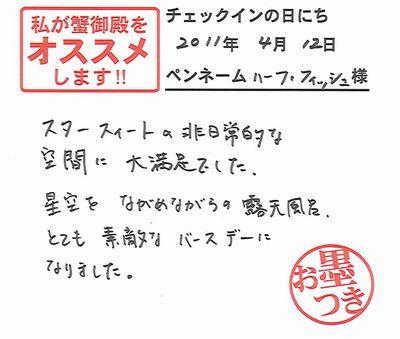 私が蟹御殿を
オススメ
します!!
チェックインの日にち
2011年 4月 12日
ペンネーム ハーフ・フィッシュ様
スタースイートの非日常的な
空間に 大満足でした。
星空を ながめながらの 露天風呂、
とても 素敵な バースデーに
なりました。
お墨つき